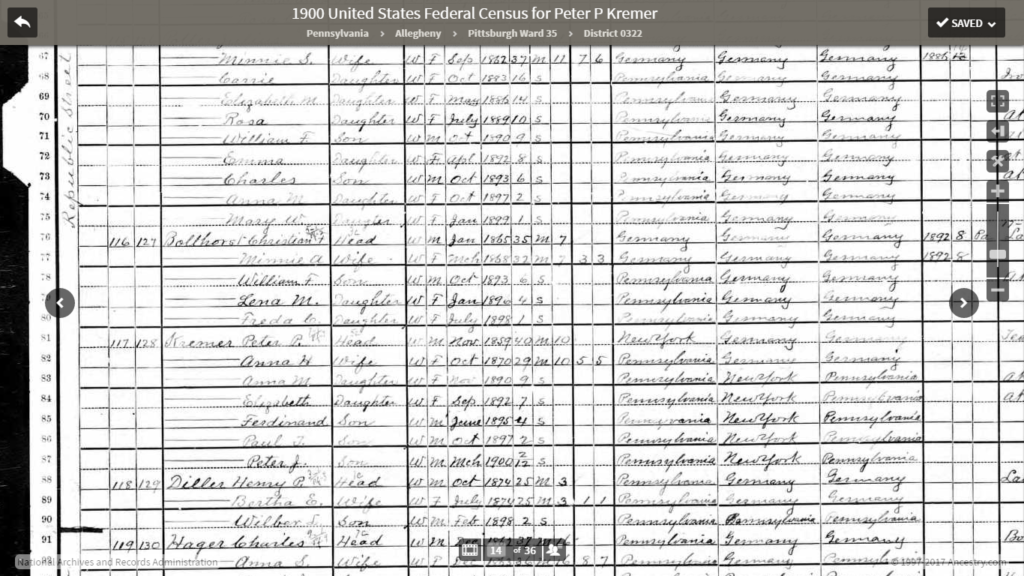 1900 United States Federal Census for Peter P Kremer
Pennsylvania > Allegheny > Pittsburgh Ward 35 > District 0322
SAVED
Republic Street
67 Minnie S. Wife W F Sep 1862 37 M 11 7 6 Germany Germany Germany 1886
68 Carrie Daughter W F Oct 1883 16 S Pennsylvania Germany Germany
69 Elizabeth M. Daughter W F May 1886 14 S Pennsylvania Germany Germany
70 Rosa Daughter W F July 1889 10 S Pennsylvania Germany Germany
71 William F. Son W M Oct 1890 9 S Pennsylvania Germany Germany
72 Emma Daughter W F Sept 1892 8 S Pennsylvania Germany Germany
73 Charles Son W M Oct 1893 6 S Pennsylvania Germany Germany
74 Anna M Daughter W F Oct 1897 2 S Pennsylvania Germany Germany
75 Mary W. Daughter W F Jan 1899 1 S Pennsylvania Germany Germany
76 116 127 Bollhorst Christian F Head W M Jan 1865 35 M 7 Germany Germany Germany 1892 8 Pa
77 Minnie A Wife W F Mch 1868 32 M 7 3 3 Germany Germany Germany 1892 8
78 William F. Son W M Oct 1893 6 S Pennsylvania Germany Germany
79 Lena M. Daughter W F Jan 1896 4 S Pennsylvania Germany Germany
80 Freda C. Daughter W F July 1898 1 S Pennsylvania Germany Germany
81 117 128 Kremer Peter P. Head W M Nov 1859 40 M 10 New York Germany Germany
82 Anna H Wife W F Oct 1870 29 M 10 5 5 Pennsylvania Germany Germany
83 Anna M. Daughter W F Nov 1890 9 S Pennsylvania New York Pennsylvania
84 Elizabeth Daughter W F Sep 1892 7 S Pennsylvania New York Pennsylvania
85 Ferdinand Son W M June 1895 4 S Pennsylvania New York Pennsylvania
86 Paul J. Son W M Oct 1897 2 S Pennsylvania New York Pennsylvania
87 Peter J. Son W M Mch 1900 2/12 S Pennsylvania New York Pennsylvania
88 118 129 Diller Henry P. Head W M Oct 1874 25 M 3 Pennsylvania Germany Germany
89 Bertha E. Wife W F July 1874 25 M 3 1 1 Pennsylvania Germany Germany
90 Wilber J. Son W M Feb 1898 2 S Pennsylvania Pennsylvania Pennsylvania
91 119 130 Hager Charles Head W M Pennsylvania Germany Germany
Anna S. Wife W F 8 7 Pennsylvania Germany Germany
14 of 36
National Archives and Records Administration
© 1997-2017 Ancestry.com